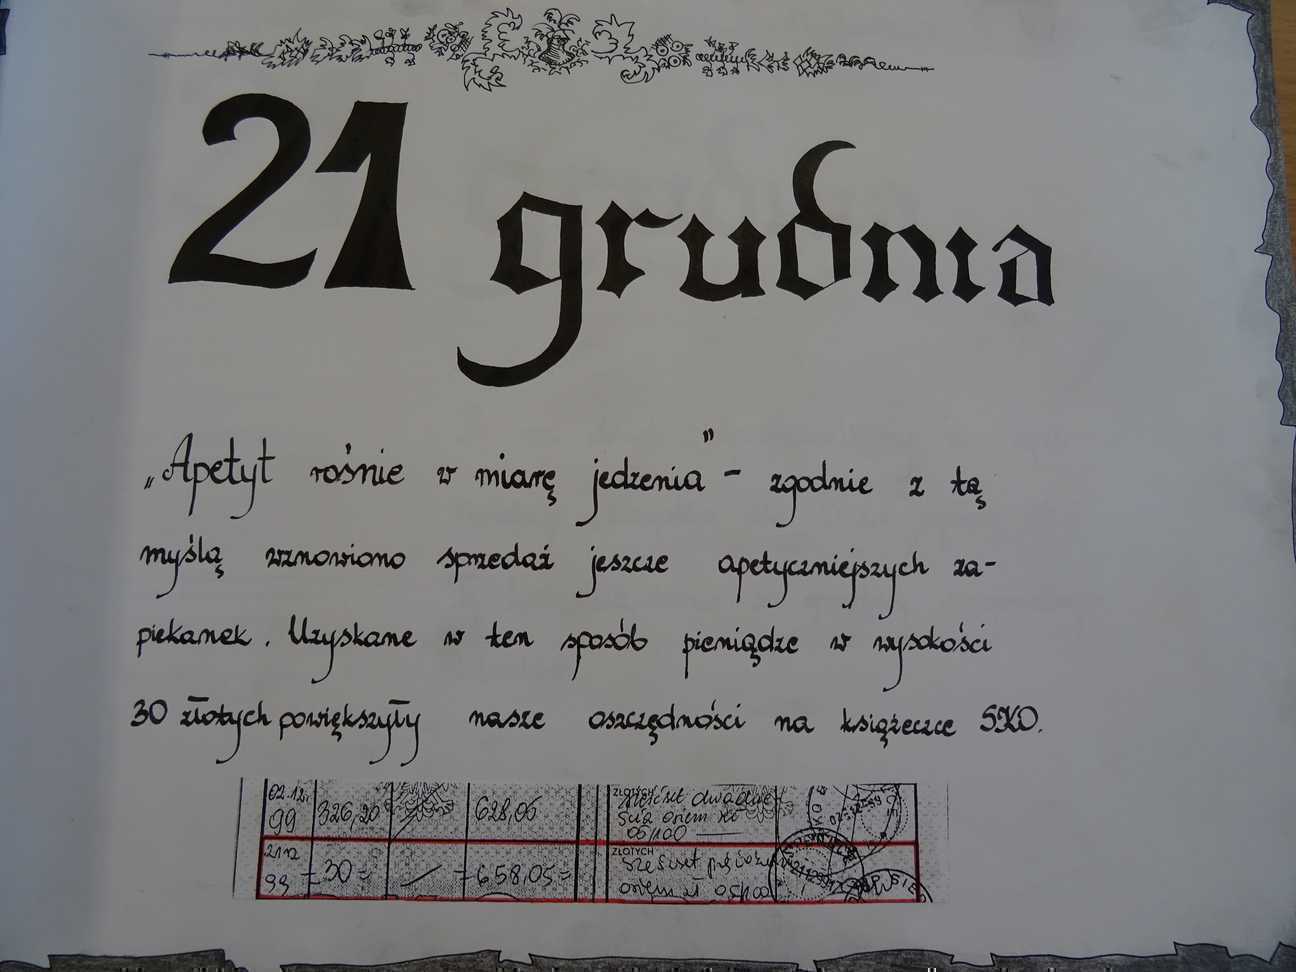 21 grudnia
„Apetyt rośnie w miarę jedzenia" - zgodnie z tą
myślą wznowiono sprzedaż jeszcze apetyczniejszych za-
piekanek. Uzyskane w ten sposób pieniądze w wysokości
30 złotych powiększyły nasze oszczędności na książeczce SKO.
02.12. 99 326,20 628,05 ZŁOTYCH sześćset dwadzie
ścia osiem zł 05/100
21 12 99 =30= — =658,05= ZŁOTYCH sześćset pięćdzie
osiem zł 05/100